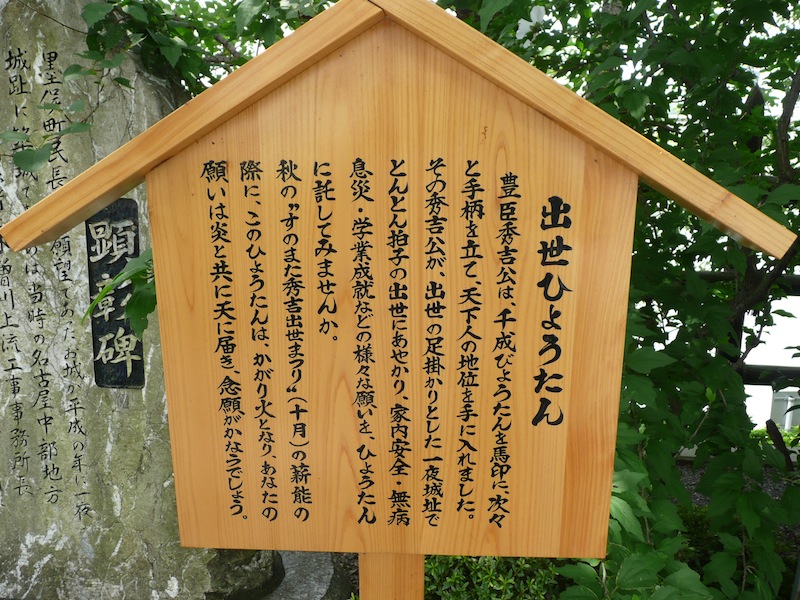 出世ひょうたん
豊臣秀吉公は、千成びょうたんを馬印に、次々
と手柄を立て、天下人の地位を手に入れました。
その秀吉公が、出世の足掛かりとした一夜城址で
とんとん拍子の出世にあやかり、家内安全・無病
息災・学業成就などの様々な願いを、ひょうたん
に託してみませんか。
秋の〝すのまた秀吉出世まつり〟(十月)の薪能の
際に、このひょうたんは、かがり火となり、あなたの
願いは炎と共に天に届き、念願がかなうでしょう。
顕彰碑
城址に築城
は当時の名古屋中部地方
川上流工事事務所長